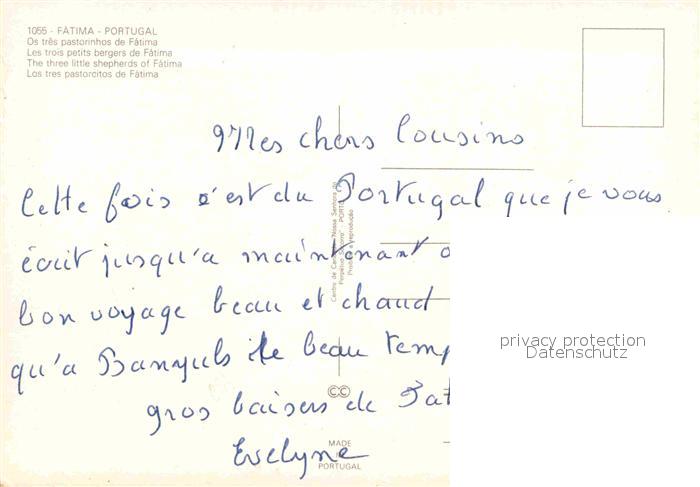 1055 - FÁTIMA - PORTUGAL
Os três pastorinhos de Fátima
Les trois petits bergers de Fátima
The three little shepherds of Fátima
Los tres pastorcitos de Fátima
Mes chers Cousins
Cette fois c'est du Portugal que je vous
écrit jusqu'a maintenant
bon voyage beau et chaud
qu'a Banyuls le beau temp
gros baisers de Fat
Evelyne
MADE
PORTUGAL
privacy protection
Datenschutz